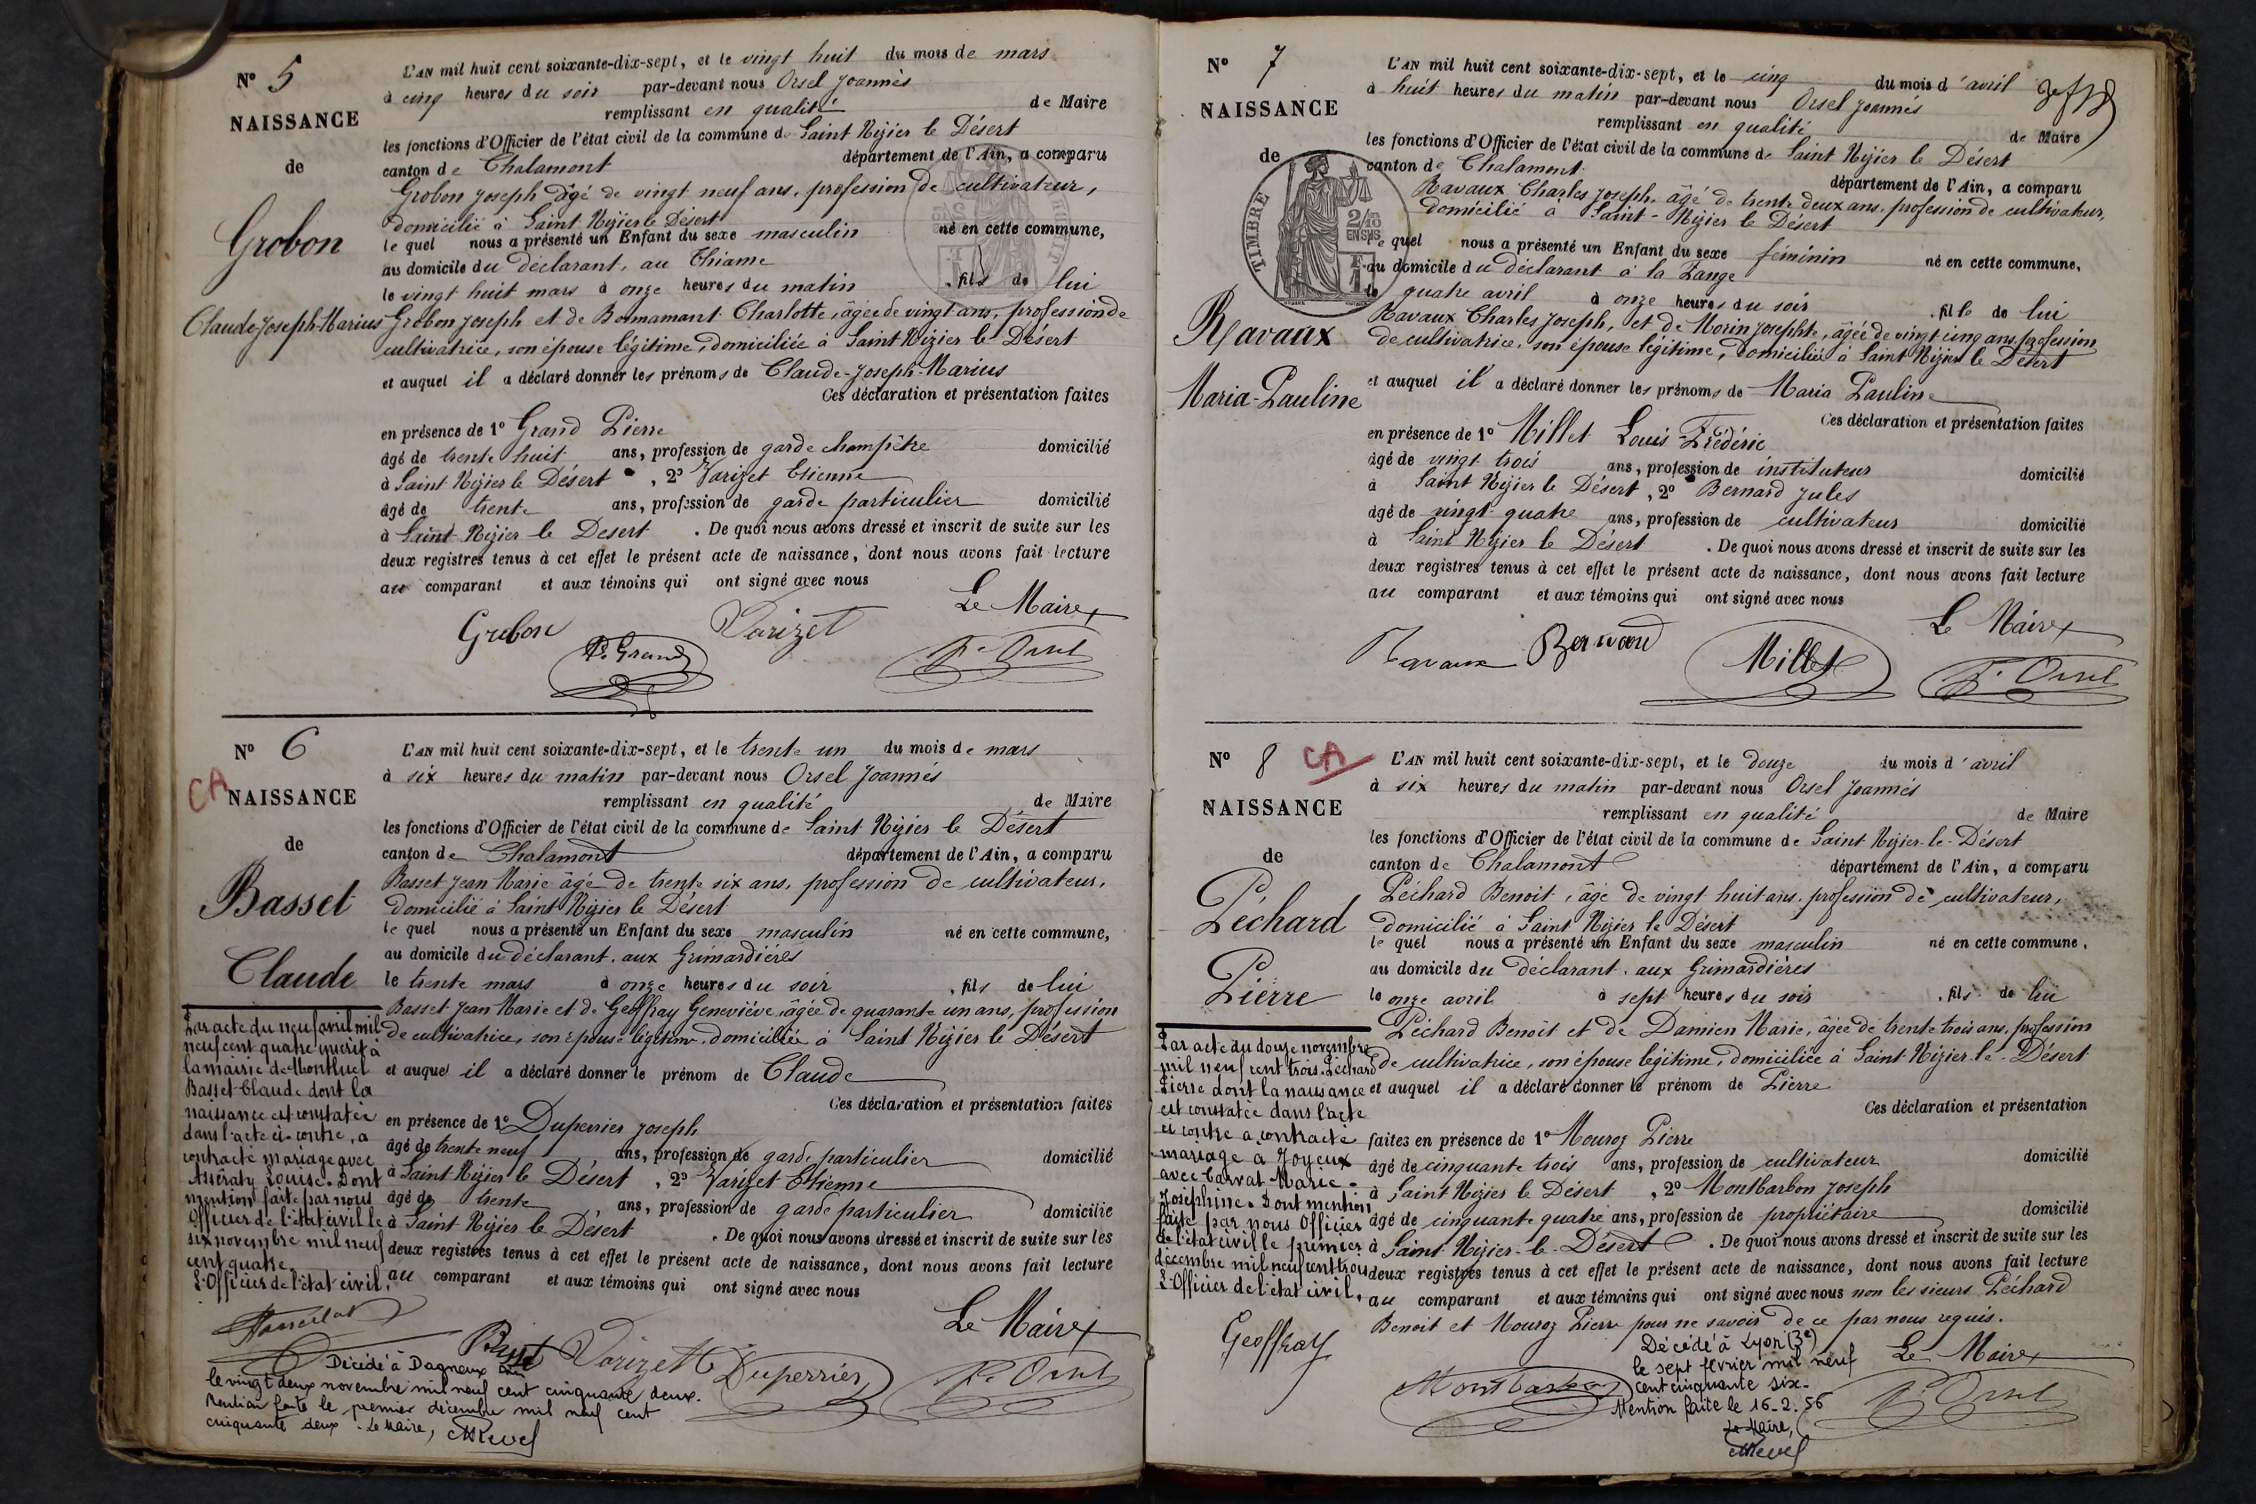 N° 5
NAISSANCE
de
Grobon
Claude-Joseph-Marius
L'AN mil huit cent soixante-dix-sept, et le vingt huit du mois de mars
à cinq heures du soir par-devant nous Orsel Joannès
remplissant en qualité de Maire
les fonctions d'Officier de l'état civil de la commune de Saint Nizier le Désert
canton de Chalamont département de l'Ain, a comparu
Grobon Joseph âgé de vingt neuf ans, profession de cultivateur,
domicilié à Saint Nizier le Désert
le quel nous a présenté un Enfant du sexe masculin né en cette commune,
au domicile du déclarant, au Thiame
le vingt huit mars à onze heures du matin , fils de lui
Grobon Joseph et de Bonnamant Charlotte, âgée de vingt ans, profession de
cultivatrice, son épouse légitime, domiciliée à Saint Nizier le Désert
et auquel il a déclaré donner les prénoms de Claude-Joseph-Marius
Ces déclaration et présentation faites
en présence de 1° Grand Pierre
âgé de trente huit ans, profession de garde champêtre domicilié
à Saint Nizier le Désert , 2° Varizet Etienne
âgé de trente ans, profession de garde particulier domicilié
à Saint Nizier le Desert . De quoi nous avons dressé et inscrit de suite sur les
deux registres tenus à cet effet le présent acte de naissance, dont nous avons fait lecture
au comparant et aux témoins qui ont signé avec nous
Le Maire
Grobon P. Grand Varizet Orsel
N° 6
CA
NAISSANCE
de
Basset
Claude
L'AN mil huit cent soixante-dix-sept, et le trente un du mois de mars
à six heures du matin par-devant nous Orsel Joannés
remplissant en qualité de Maire
les fonctions d'Officier de l'état civil de la commune de Saint Nizier le Désert
canton de Chalamont département de l'Ain, a comparu
Basset Jean Marie âgé de trente six ans, profession de cultivateur,
domicilié à Saint Nizier le Désert
le quel nous a présenté un Enfant du sexe masculin né en cette commune,
au domicile du déclarant, aux Grimardières
le trente mars à onze heures du soir , fils de lui
Basset Jean Marie et de Geoffray Geneviève, âgée de quarante un ans, profession
de cultivatrice, son épouse légitime, domiciliée à Saint Nizier le Désert
et auquel il a déclaré donner le prénom de Claude
Ces déclaration et présentation faites
en présence de 1° Duperrier Joseph
âgé de trente neuf ans, profession de garde particulier domicilié
à Saint Nizier le Désert , 2° Varizet Etienne
âgé de trente ans, profession de garde particulier domicilié
à Saint Nizier le Désert . De quoi nous avons dressé et inscrit de suite sur les
deux registres tenus à cet effet le présent acte de naissance, dont nous avons fait lecture
au comparant et aux témoins qui ont signé avec nous
Le Maire
Basset Varizet Duperrier Orsel
Par acte du neuf avril mil
neuf cent quatre inscrit à
la mairie de Montluel
Basset Claude dont la
naissance est constatée
dans l'acte ci-contre, a
contracté mariage avec
Louise. Dont
mention faite par nous
Officier de l'état civil le
six novembre mil neuf
cent quatre.
L'Officier de l'état civil,
Décédé à Dagneux Ain
le vingt deux novembre mil neuf cent cinquante deux.
Mention faite le premier décembre mil neuf cent
cinquante deux. Le Maire,
N° 7
NAISSANCE
de
TIMBRE
2/10 EN SUS
Ravaux
Maria-Pauline
L'AN mil huit cent soixante-dix-sept, et le cinq du mois d'avril
à huit heures du matin par-devant nous Orsel Joannés
remplissant en qualité de Maire
les fonctions d'Officier de l'état civil de la commune de Saint Nizier le Désert
canton de Chalamont département de l'Ain, a comparu
Ravaux Charles Joseph, âgé de trente deux ans, profession de cultivateur,
domicilié à Saint-Nizier le Désert
le quel nous a présenté un Enfant du sexe féminin né en cette commune,
au domicile du déclarant à la Fange
le quatre avril à onze heures du soir , fille de lui
Ravaux Charles Joseph, et de Morin Josephte, âgée de vingt cinq ans, profession
de cultivatrice, son épouse légitime, domiciliée à Saint Nizier le Désert
et auquel il a déclaré donner les prénoms de Maria Pauline
Ces déclaration et présentation faites
en présence de 1° Millet Louis Frédéric
âgé de vingt trois ans, profession de instituteur domicilié
à Saint Nizier le Désert , 2° Bernard Jules
âgé de vingt quatre ans, profession de cultivateur domicilié
à Saint Nizier le Désert . De quoi nous avons dressé et inscrit de suite sur les
deux registres tenus à cet effet le présent acte de naissance, dont nous avons fait lecture
au comparant et aux témoins qui ont signé avec nous
Le Maire
Ravaux Bernard Millet Orsel
N° 8
CA
NAISSANCE
de
Péchard
Pierre
L'AN mil huit cent soixante-dix-sept, et le douze du mois d'avril
à six heures du matin par-devant nous Orsel Joannés
remplissant en qualité de Maire
les fonctions d'Officier de l'état civil de la commune de Saint Nizier-le-Désert
canton de Chalamont département de l'Ain, a comparu
Péchard Benoit, âgé de vingt huit ans, profession de cultivateur,
domicilié à Saint Nizier le Désert
le quel nous a présenté un Enfant du sexe masculin né en cette commune,
au domicile du déclarant, aux Grimardières
le onze avril à sept heures du soir , fils de lui
Péchard Benoît et de Damien Marie, âgée de trente trois ans, profession
de cultivatrice, son épouse légitime, domiciliée à Saint-Nizier-le-Désert
et auquel il a déclaré donner le prénom de Pierre
Ces déclaration et présentation
faites en présence de 1° Mouroz Pierre
âgé de cinquante trois ans, profession de cultivateur domicilié
à Saint Nizier le Désert , 2° Montbarbon Joseph
âgé de cinquante quatre ans, profession de propriétaire domicilié
à Saint-Nizier-le-Désert . De quoi nous avons dressé et inscrit de suite sur les
deux registres tenus à cet effet le présent acte de naissance, dont nous avons fait lecture
au comparant et aux témoins qui ont signé avec nous non les sieurs Péchard
Benoit et Mouroz Pierre pour ne savoir de ce par nous requis.
Le Maire
Montbarbon Orsel
Par acte du douze novembre
mil neuf cent trois. Péchard
Pierre dont la naissance
est constatée dans l'acte
ci contre a contracté
mariage à Joyeux
avec Carvat Marie-
Joséphine. Dont mention
faite par nous Officier
de l'état civil le premier
décembre mil neuf cent trois
L'Officier de l'état civil,
Geoffray
Décédé à Lyon (3e)
le sept février mil neuf
cent cinquante six.
Mention faite le 16.2.56
Le Maire,